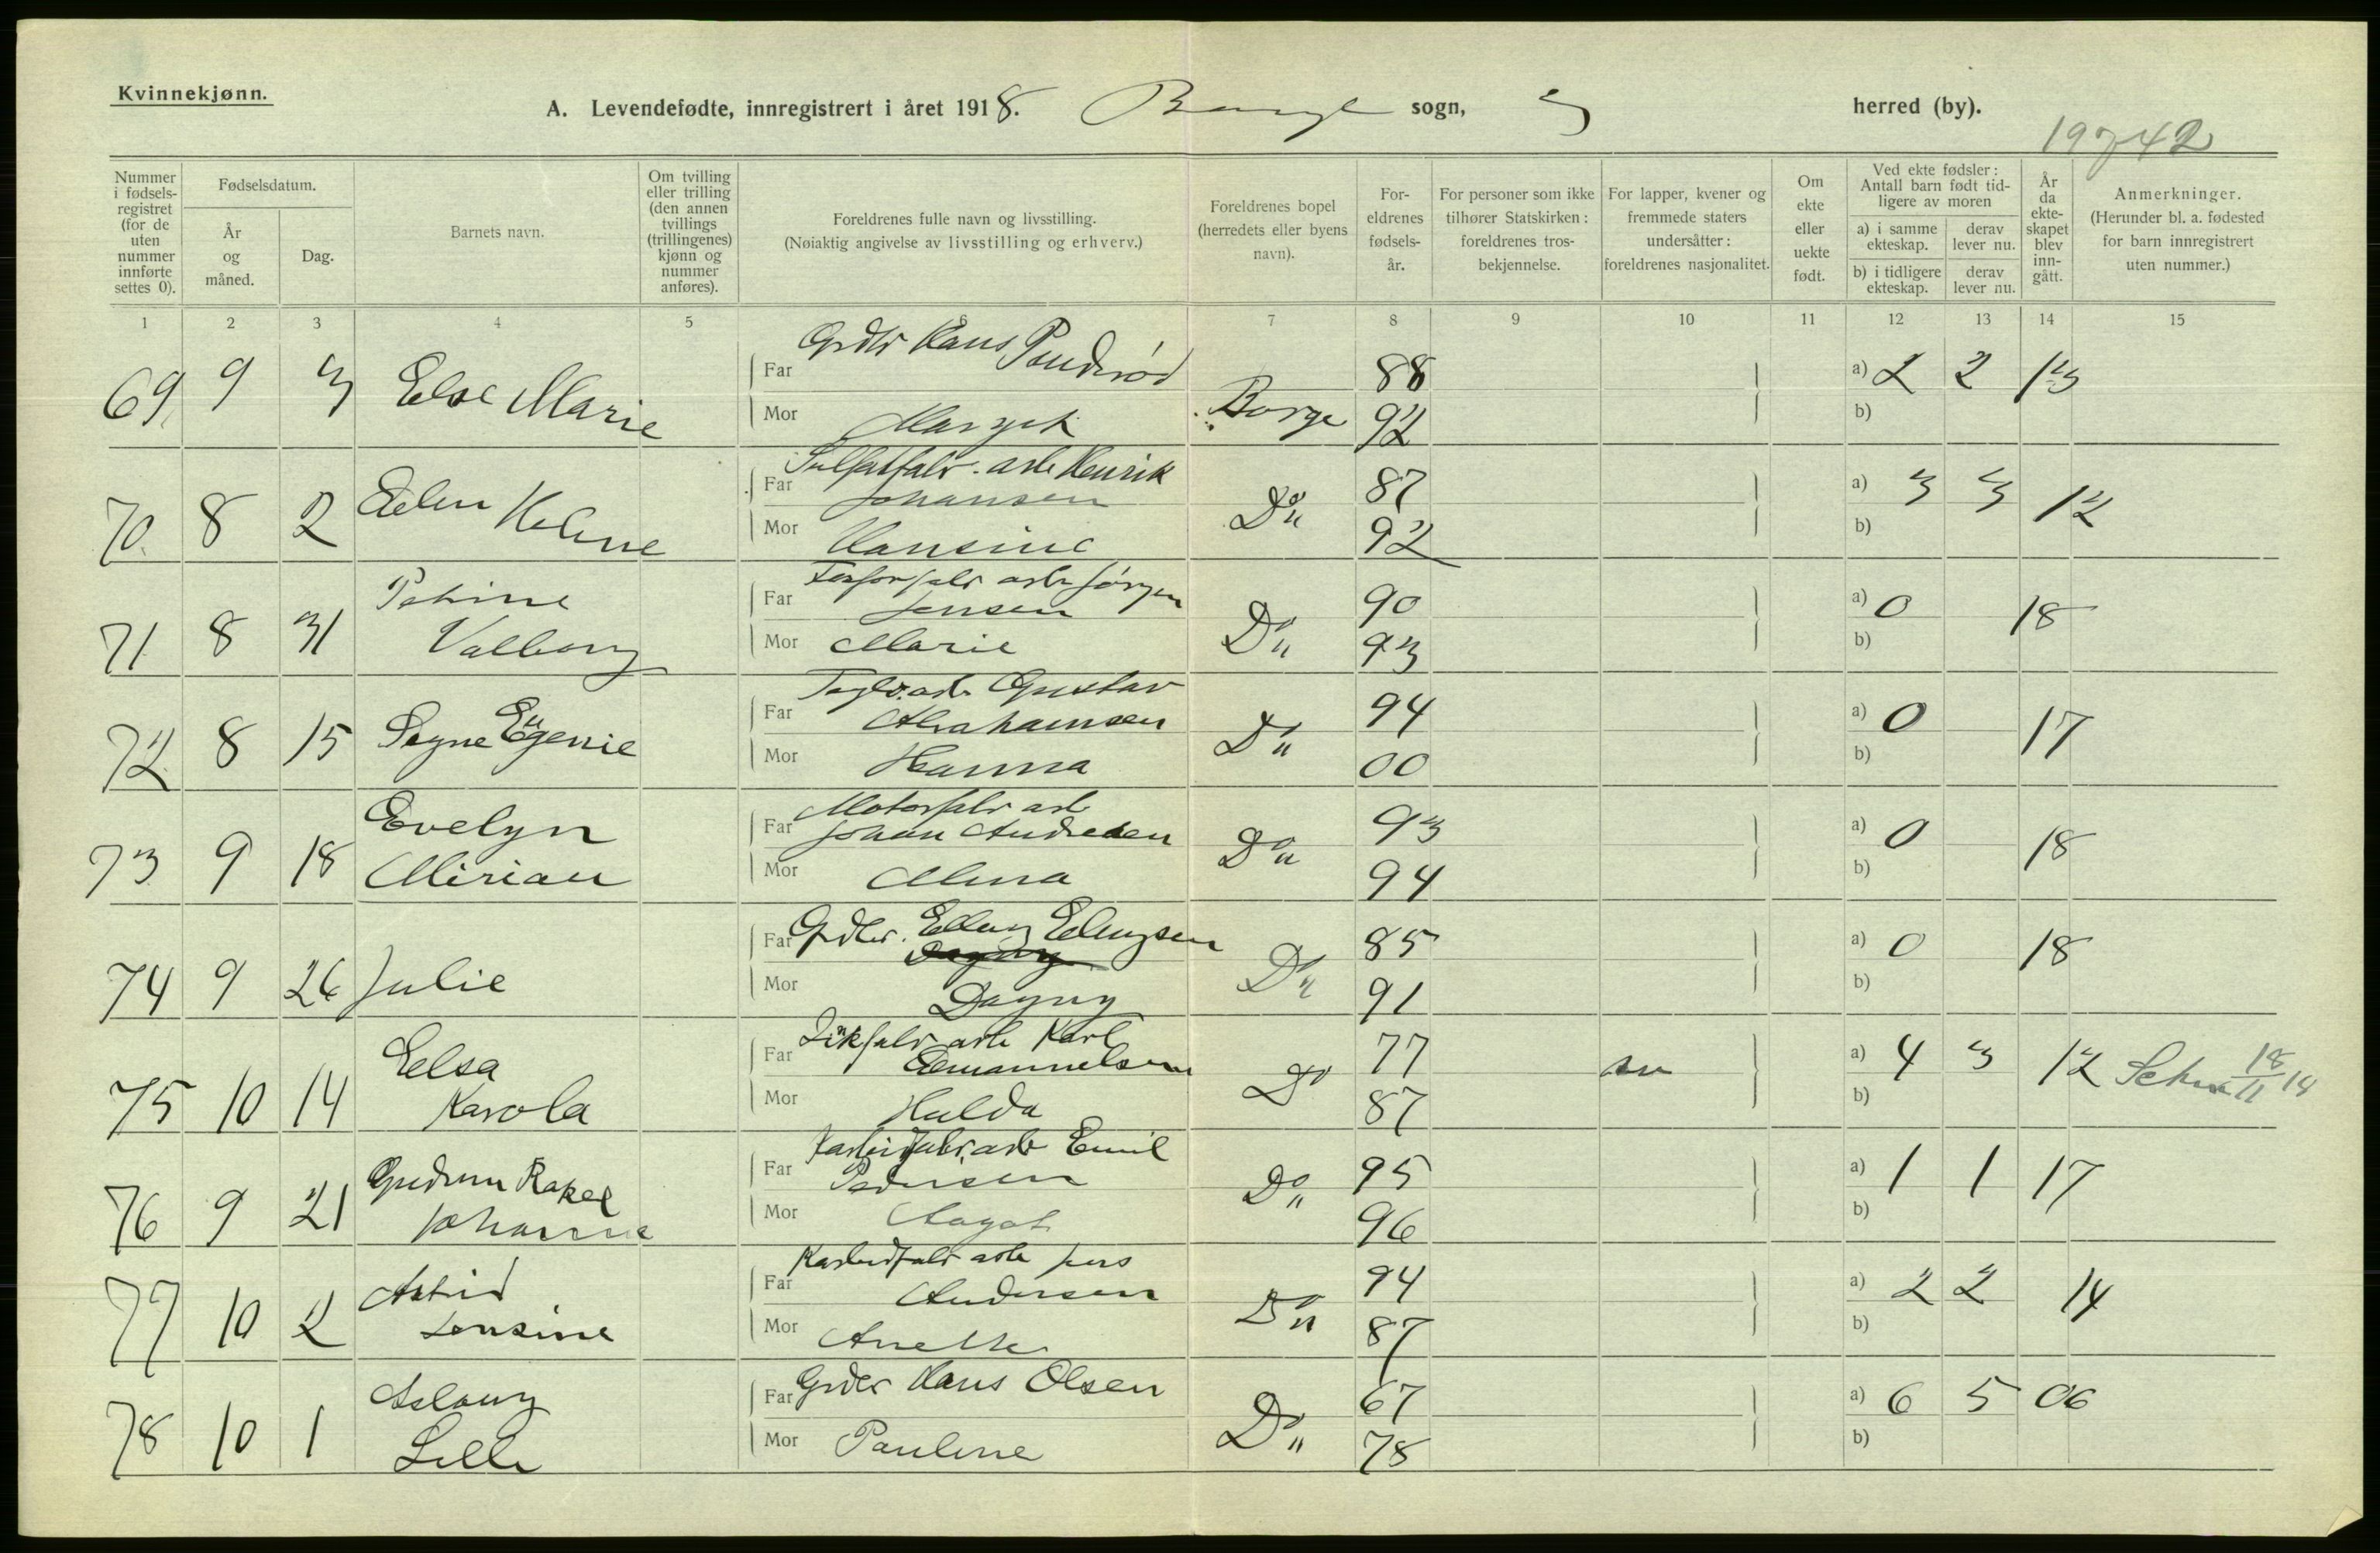 Kvinnekjønn.
A. Levendefødte, innregistrert i året 1918. Borge sogn, herred (by).
19742
Nummer i fødselsregistret (for de uten nummer innførte settes 0).
Fødselsdatum.
År og måned.
Dag.
Barnets navn.
Om tvilling eller trilling (den annen tvillings (trillingenes) kjønn og nummer anføres).
Foreldrenes fulle navn og livsstilling.
(Nøiaktig angivelse av livsstilling og erhverv.)
Foreldrenes bopel (herredets eller byens navn).
Foreldrenes fødselsår.
For personer som ikke tilhører Statskirken: foreldrenes trosbekjennelse.
For lapper, kvener og fremmede staters undersåtter: foreldrenes nasjonalitet.
Om ekte eller uekte født.
Ved ekte fødsler: Antall barn født tidligere av moren
a) i samme ekteskap.
derav lever nu.
b) i tidligere ekteskap.
derav lever nu.
År da ekteskapet blev inngått.
Anmerkninger.
(Herunder bl. a. fødested for barn innregistrert uten nummer.)
1 2 3 4 5 6 7 8 9 10 11 12 13 14 15
69 9 3 Else Marie Far Grdbr Hans 88 a) 2 2 13
Mor Margit Borge 92 b)
70 8 2 Helene Far arb Henrik Johansen Do 87 a) 3 3 12
Mor Hansine 92 b)
71 8 31 Petrine Valborg Far Fosforfabr arb Jørgen Jensen Do 90 a) 0 18
Mor Marie 93 b)
72 8 15 Signe Eugenie Far Teglv. arb Gustav Abrahamsen Do 94 a) 0 17
Mor Hanna 00 b)
73 9 18 Evelyn Mirian Far Motorfabr arb Johan Andresen Do 93 a) 0 18
Mor 94 b)
74 9 26 Julie Far Grdbr. Do 85 a) 0 18
Mor Dagny 91 b)
75 10 14 Elsa Karola Far arb Karl Emanuelsen Do 77 sv a) 4 3 12 18/11 14
Mor Hulda 87 b)
76 9 21 Gudrun Rakel Johanne Far Karbidfabr. arb Emil Pedersen Do 95 a) 1 1 17
Mor Aagot 96 b)
77 10 2 Astrid Jensine Far Karbidfabr arb Jens Andersen Do 94 a) 2 2 14
Mor Anette 87 b)
78 10 1 Aslaug Lilli Far Grdbr Hans Olsen Do 67 a) 6 5 06
Mor Pauline 78 b)